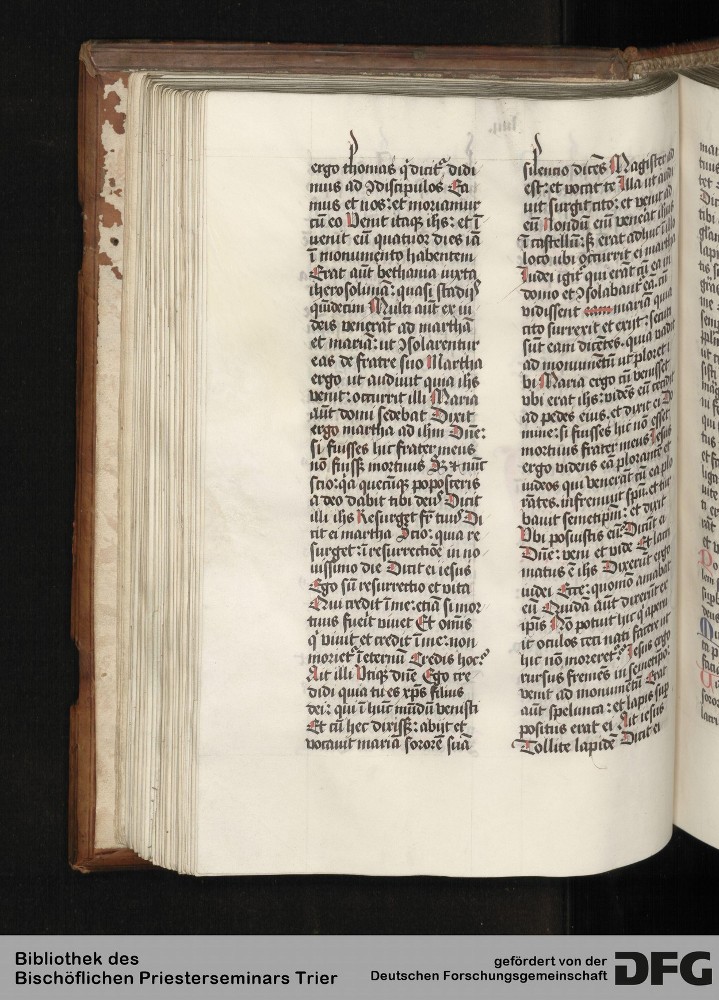 ergo thomas q̇ dicit᷑ didi
mus ad ↄdiscipulos Ea
mus et nos: et moriamur
cū eo Venit itaqꝫ ihs: et ī
uenit eū quatuor dies iā
ī monumento habentem
Erat aūt bethania iuxta
iherosolimā: quasi stadijs
qūdecim Multi aūt ex iu
deis venerāt ad marthā
et mariā: ut ↄsolarentur
eas de fratre suo Martha
ergo ut audiuit quia ihs
venit: occurrit illi Maria
aūt domi sedebat Dixit
ergo martha ad ihm Dn̄e:
si fuisses hic frater meus
nō fuissꝫ mortuus Sꝫ et nūc
scio: qa quecūqꝫ poposceris
a deo dabit tibi deus Dicit
illi ihs Resurget fr̄ tuus Di
cit ei martha Scio: quia re
surget: ī resurrectiōe in no
uissimo die Dicit ei iesus
Ego sū resurrectio et vita
Qui credit ī me: etiā si mor
tuus fuerit viuet Et omīs
q̇ viuit et credit ī me: non
moriet᷑ ī eternū Credis hoc?
Ait illi Vtiqꝫ dn̄e Ego cre
didi quia tu es xp̄s filius
dei: qui ī hūc mūdū venisti
Et cū hec dixissꝫ: abijt et
vocauit mariā sororē suā
silentio dicēs Magister ad
est: et vocat te Illa ut audi
uit surgit cito: et venit ad
eū Nondū eīm veneāt ihus
ī castellū: sꝫ erat adhuc ī illo
loco ubi occurrit ei martha
Iudei igit᷑ qui erāt cū ea in
domo et ↄsolabant᷑ eā: cū
vidissent eam mariā quia
cito surrexit et exijt: secuti
sūt eam dicētes: quia vadit
ad monumētū ut ploret i
bi Maria ergo cū venisset
vbi erat ihs: vidēs eū cecidit
ad pedes eius. et dixit ei Do
mine: si fuisses hic nō esset
mortuus frater meus Iesus
ergo videns eā plorantē et
iudeos qui venerāt cū ea plo
rātes. infremuit spū. et tur
bauit semetipm̄: et dixit
Vbi posuistis eū Dicūt ei
Dn̄e: veni et vide Et lacri
matus ē ihs Dixerūt ergo
iudei Ecce: quomō amabat
eū Quidā aūt dixerūt ex
ipīs Nō potuit hic q̇ aperu
it oculos ceci nati facere ut
hic nō moreret᷑ Iesus ergo
rursus fremēs in semetipo:
venit ad monumētū Erat
aūt spelunca: et lapis sup
positus erat ei Ait iesus
Tollite lapidē Dicit ei
Bibliothek des
Bischöflichen Priesterseminars Trier
gefördert von der
Deutschen Forschungsgemeinschaft
DFG